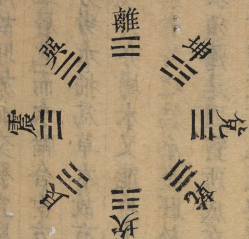 離
兌
乾
坎
艮
震
巽